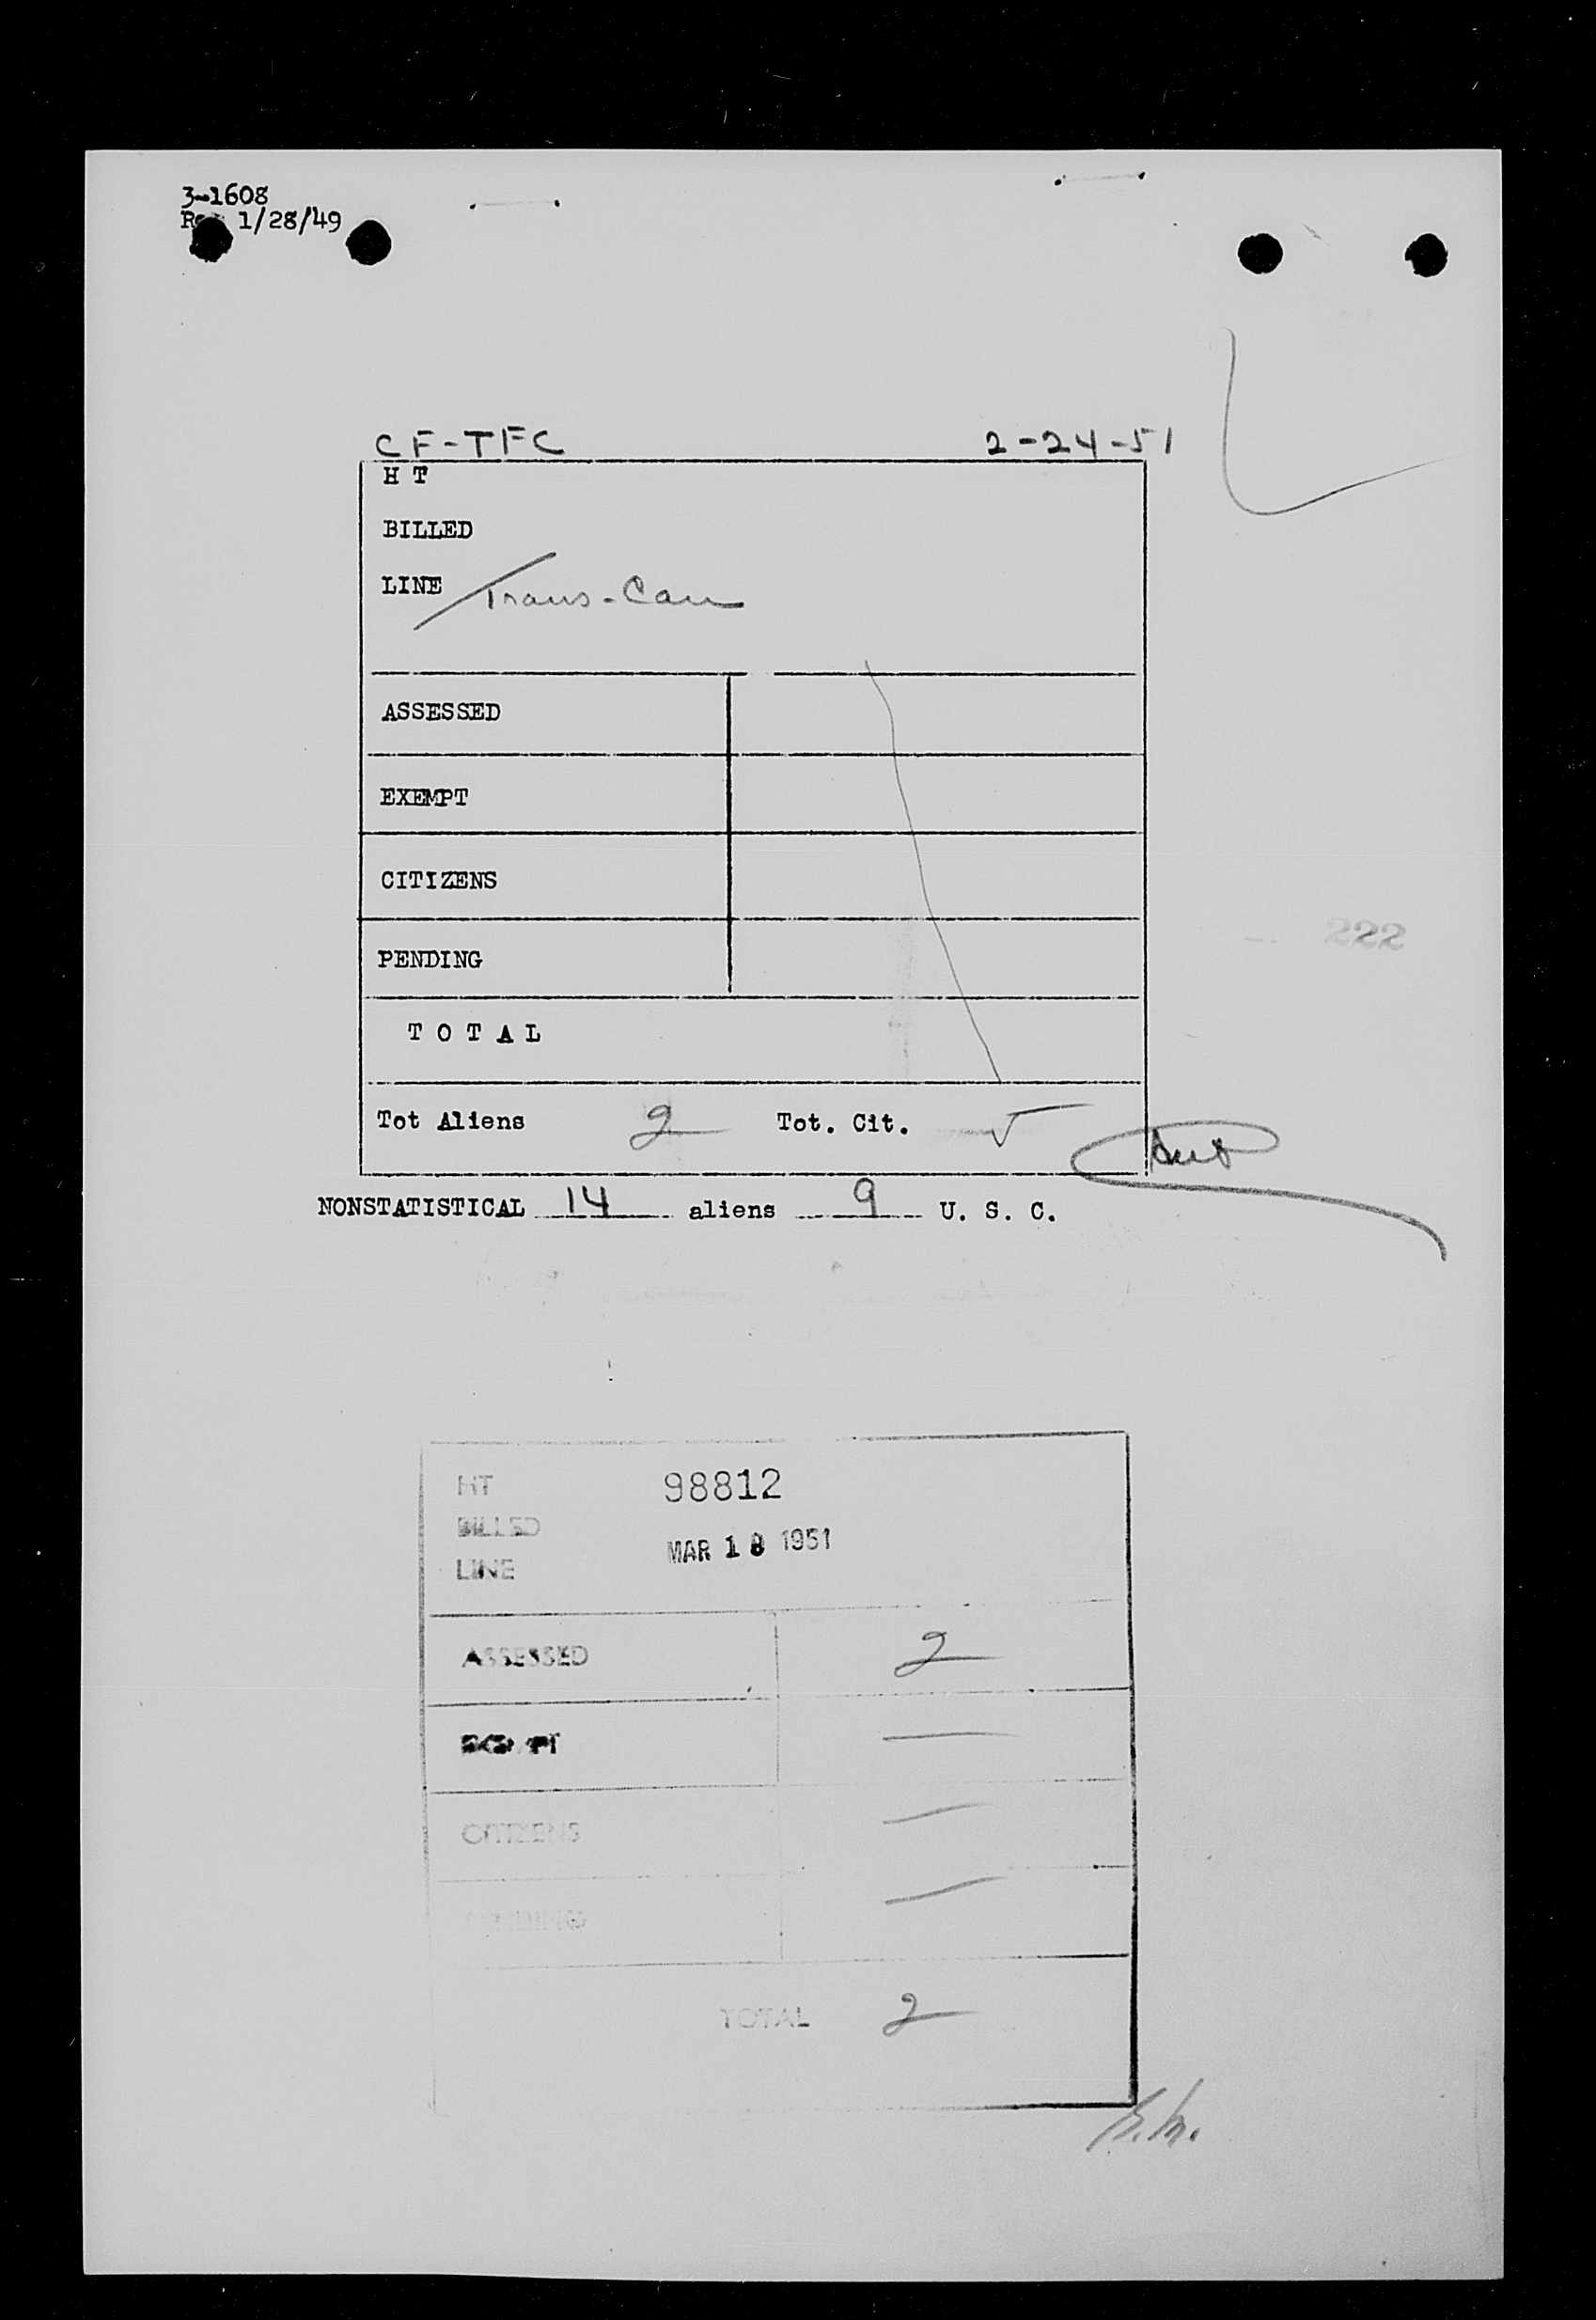 3-1608
Rev 1/28/49
CF-TFC 2-24-51
H T
BILLED
LINE Trans-Can
ASSESSED
EXEMPT
CITIZENS
222
PENDING
T O T A L
Tot Aliens 2 Tot. Cit.
NONSTATISTICAL 14 aliens 9 U. S. C.
HT 98812
BILLED
MAR 18 1951
LINE
ASSESSED 2
EXEMPT
CITIZENS
PENDING
TOTAL 2